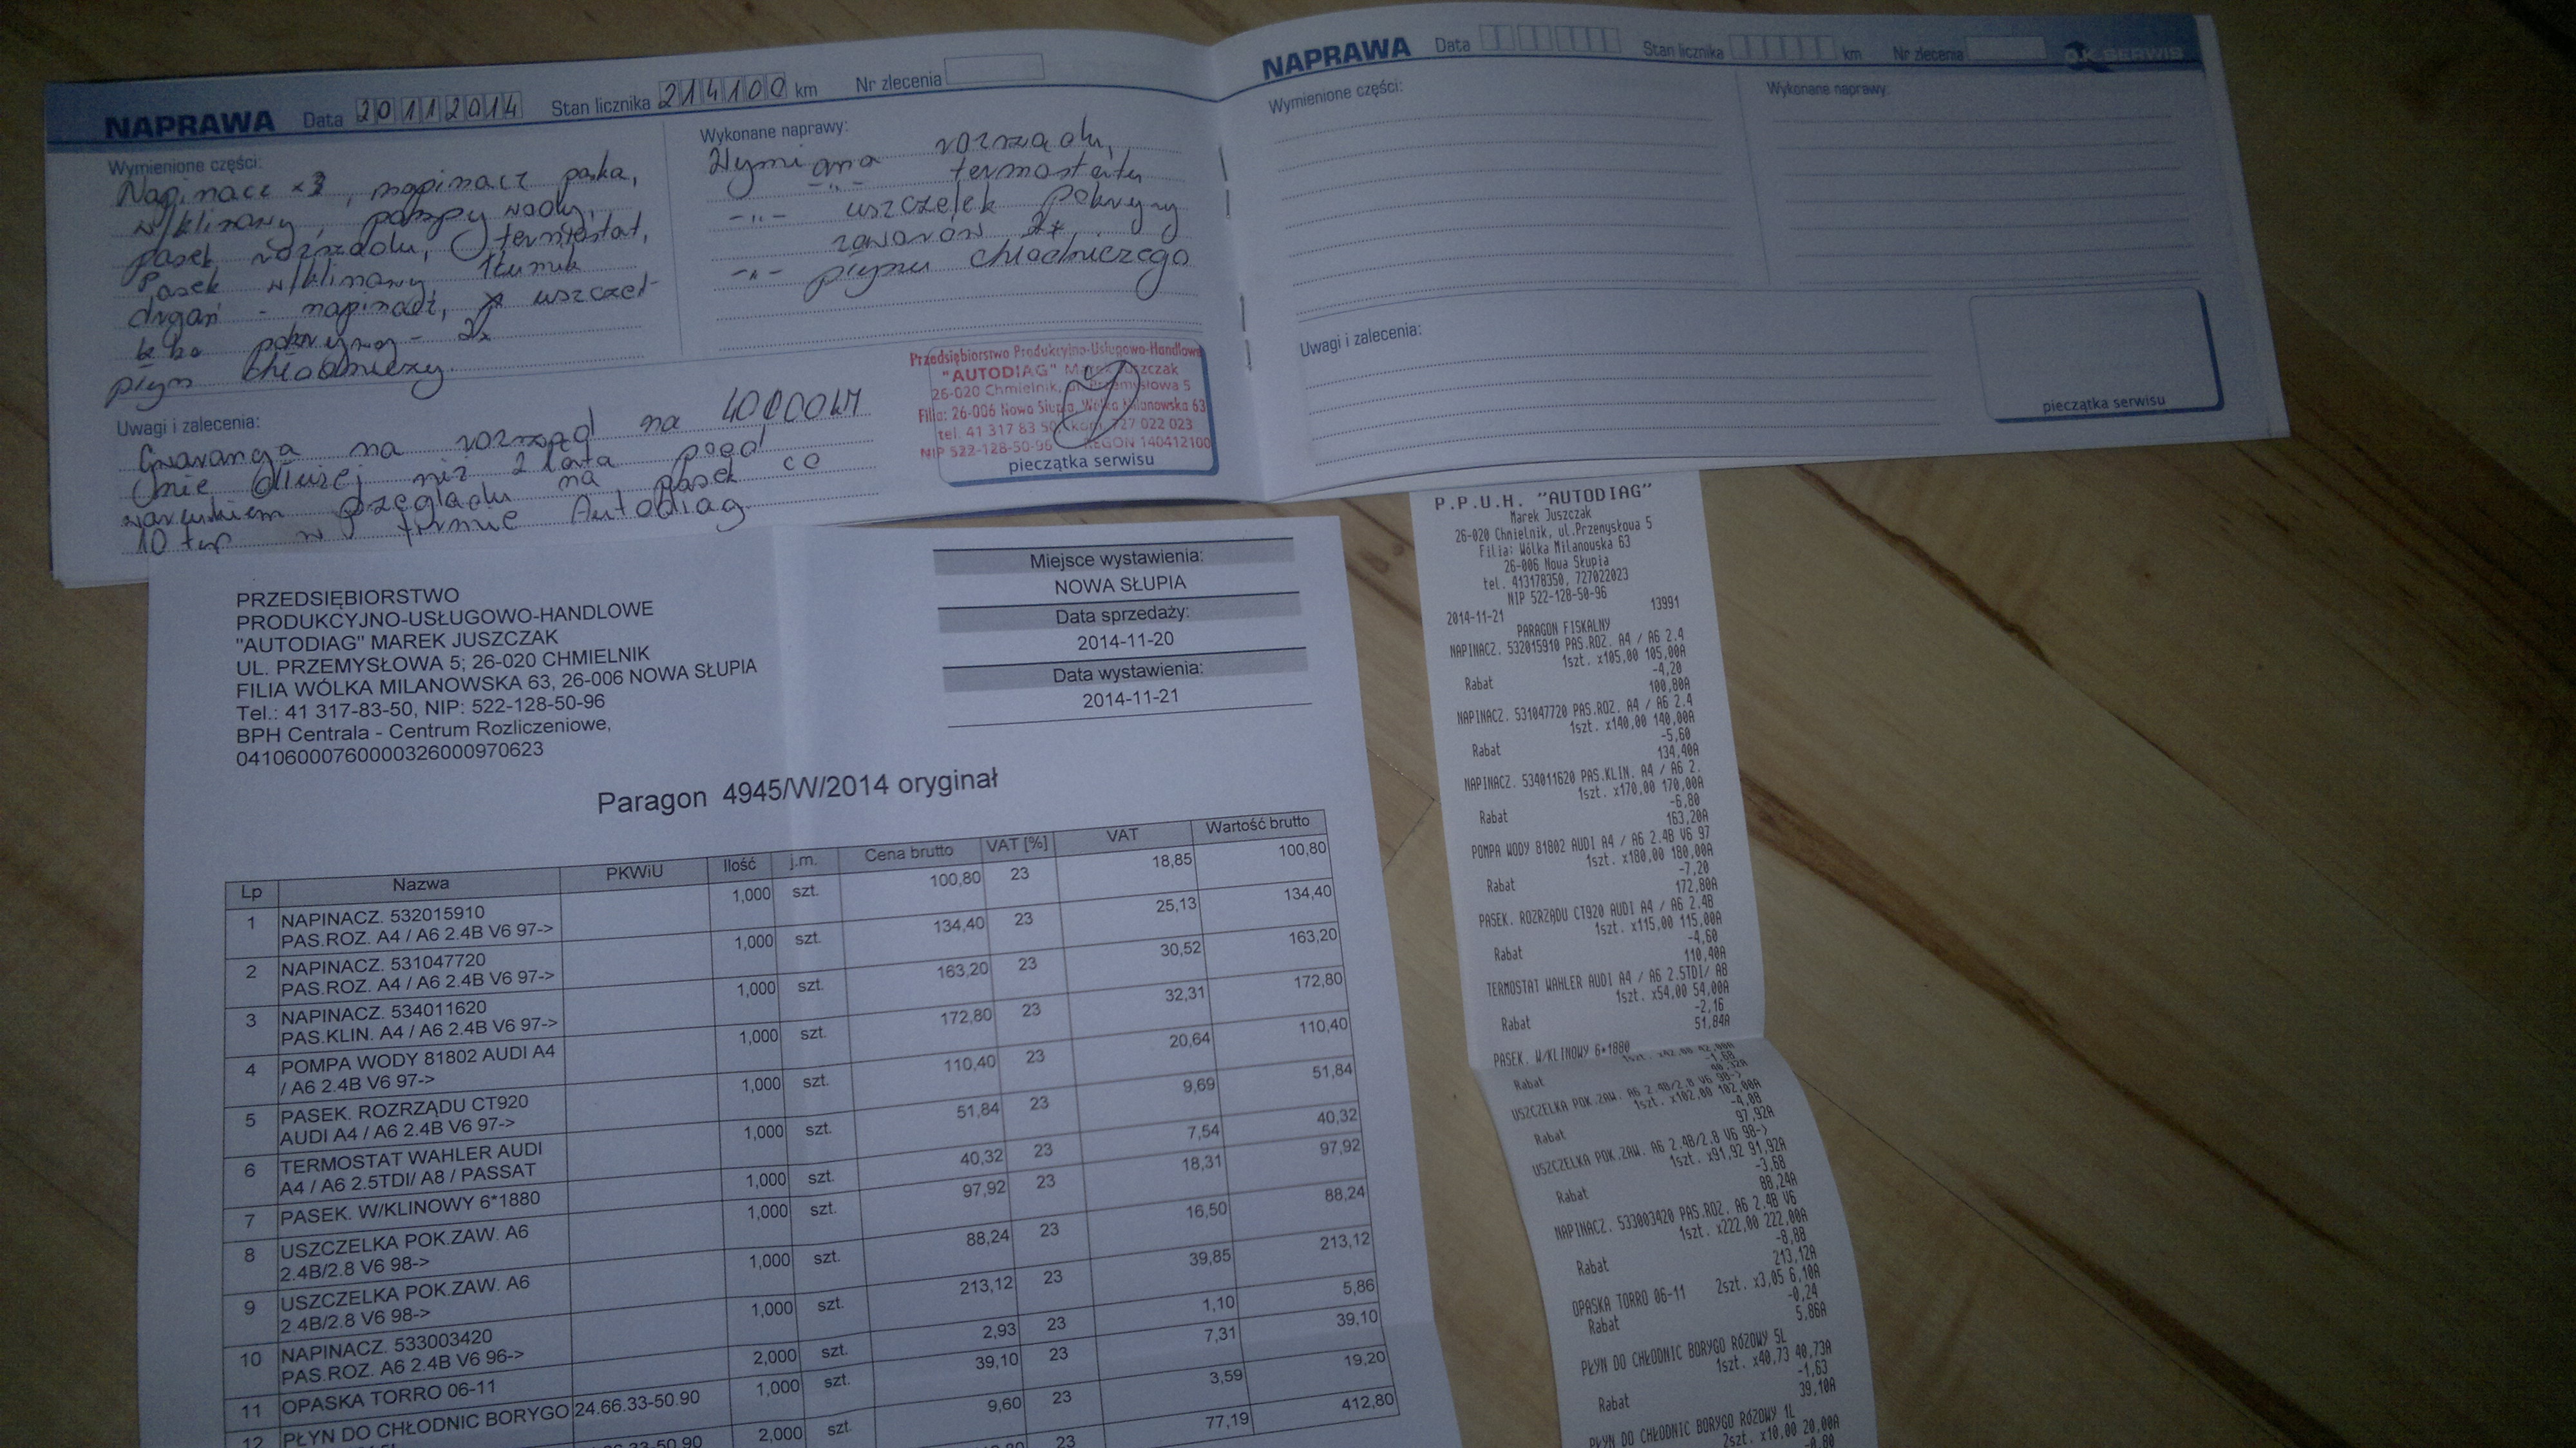 NAPRAWA Data 20112014 Stan licznika 214100 km Nr zlecenia
Wymienione części:
Napinacz x3, napinacz paska,
w/klinowy, pompy wody,
pasek rozrządu, termostat,
Pasek w/klinowy, tłumik
drgań - napinacz, uszczel-
ka pokrywy - 2x
płyn chłodniczy
Wykonane naprawy:
Wymiana rozrządu,
-"- termostatu
-"- uszczelek pokrywy
zaworów 2x
-"- płynu chłodniczego
Uwagi i zalecenia:
Gwarancja na rozrząd na 40000KM
(nie dłużej niż 2 lata pod
warunkiem przeglądu na pasek co
10 tyś w firmie Autodiag
Przedsiębiorstwo Produkcyjno-Usługowo-Handlowe
"AUTODIAG" Marek Juszczak
26-020 Chmielnik, ul. Przemysłowa 5
Filia: 26-006 Nowa Słupia, Wólka Milanowska 63
tel. 41 317 83 50, kom. 727 022 023
NIP 522-128-50-96 REGON 140412100
pieczątka serwisu
NAPRAWA Data Stan licznika km Nr zlecenia
SERWIS
Wymienione części:
Wykonane naprawy:
Uwagi i zalecenia:
pieczątka serwisu
PRZEDSIĘBIORSTWO
PRODUKCYJNO-USŁUGOWO-HANDLOWE
"AUTODIAG" MAREK JUSZCZAK
UL. PRZEMYSŁOWA 5; 26-020 CHMIELNIK
FILIA WÓLKA MILANOWSKA 63, 26-006 NOWA SŁUPIA
Tel.: 41 317-83-50, NIP: 522-128-50-96
BPH Centrala - Centrum Rozliczeniowe,
04106000760000326000970623
Miejsce wystawienia:
NOWA SŁUPIA
Data sprzedaży:
2014-11-20
Data wystawienia:
2014-11-21
Paragon 4945/W/2014 oryginał
Lp Nazwa PKWiU Ilość j.m. Cena brutto VAT [%] VAT Wartość brutto
1 NAPINACZ. 532015910 1,000 szt. 100,80 23 18,85 100,80
PAS.ROZ. A4 / A6 2.4B V6 97->
2 NAPINACZ. 531047720 1,000 szt. 134,40 23 25,13 134,40
PAS.ROZ. A4 / A6 2.4B V6 97->
3 NAPINACZ. 534011620 1,000 szt. 163,20 23 30,52 163,20
PAS.KLIN. A4 / A6 2.4B V6 97->
4 POMPA WODY 81802 AUDI A4 1,000 szt. 172,80 23 32,31 172,80
/ A6 2.4B V6 97->
5 PASEK. ROZRZĄDU CT920 1,000 szt. 110,40 23 20,64 110,40
AUDI A4 / A6 2.4B V6 97->
6 TERMOSTAT WAHLER AUDI 1,000 szt. 51,84 23 9,69 51,84
A4 / A6 2.5TDI/ A8 / PASSAT
7 PASEK. W/KLINOWY 6*1880 1,000 szt. 40,32 23 7,54 40,32
8 USZCZELKA POK.ZAW. A6 1,000 szt. 97,92 23 18,31 97,92
2.4B/2.8 V6 98->
9 USZCZELKA POK.ZAW. A6 1,000 szt. 88,24 23 16,50 88,24
2.4B/2.8 V6 98->
10 NAPINACZ. 533003420 1,000 szt. 213,12 23 39,85 213,12
PAS.ROZ. A6 2.4B V6 96->
11 OPASKA TORRO 06-11 2,000 szt. 2,93 23 1,10 5,86
12 PŁYN DO CHŁODNIC BORYGO 24.66.33-50.90 1,000 szt. 39,10 23 7,31 39,10
2,000 szt. 9,60 23 3,59 19,20
23 77,19 412,80
P.P.U.H. "AUTODIAG"
Marek Juszczak
26-020 Chmielnik, ul.Przemysłowa 5
Filia: Wólka Milanowska 63
26-006 Nowa Słupia
tel. 413178350, 727022023
NIP 522-128-50-96
2014-11-21 13991
PARAGON FISKALNY
NAPINACZ. 532015910 PAS.ROZ. A4 / A6 2.4
1szt. x105,00 105,00A
Rabat -4,20
100,80A
NAPINACZ. 531047720 PAS.ROZ. A4 / A6 2.4
1szt. x140,00 140,00A
Rabat -5,60
134,40A
NAPINACZ. 534011620 PAS.KLIN. A4 / A6 2.
1szt. x170,00 170,00A
Rabat -6,80
163,20A
POMPA WODY 81802 AUDI A4 / A6 2.4B V6 97
1szt. x180,00 180,00A
Rabat -7,20
172,80A
PASEK. ROZRZĄDU CT920 AUDI A4 / A6 2.4B
1szt. x115,00 115,00A
Rabat -4,60
110,40A
TERMOSTAT WAHLER AUDI A4 / A6 2.5TDI/ A8
1szt. x54,00 54,00A
Rabat -2,16
51,84A
PASEK. W/KLINOWY 6*1880
1szt. x42,00 42,00A
Rabat -1,68
40,32A
USZCZELKA POK.ZAW. A6 2.4B/2.8 V6 98->
1szt. x102,00 102,00A
Rabat -4,08
97,92A
USZCZELKA POK.ZAW. A6 2.4B/2.8 V6 98->
1szt. x91,92 91,92A
Rabat -3,68
88,24A
NAPINACZ. 533003420 PAS.ROZ. A6 2.4B V6
1szt. x222,00 222,00A
Rabat -8,88
213,12A
OPASKA TORRO 06-11 2szt. x3,05 6,10A
Rabat -0,24
5,86A
PŁYN DO CHŁODNIC BORYGO RÓŻOWY 5L
1szt. x40,73 40,73A
Rabat -1,63
39,10A
PŁYN DO CHŁODNIC BORYGO RÓŻOWY 1L
2szt. x10,00 20,00A
-0,80